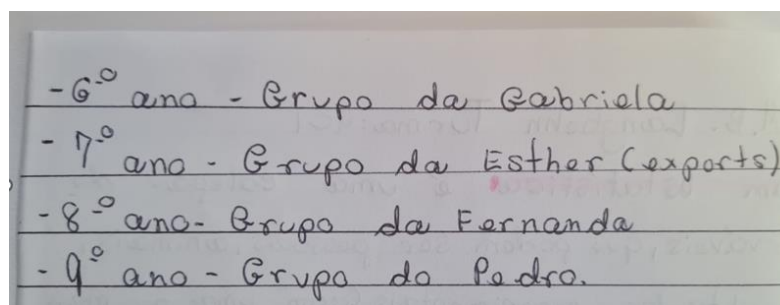 - 6º ano - Grupo da Gabriela
- 7º ano - Grupo da Esther (exports)
- 8º ano - Grupo da Fernanda
- 9º ano - Grupo do Pedro.